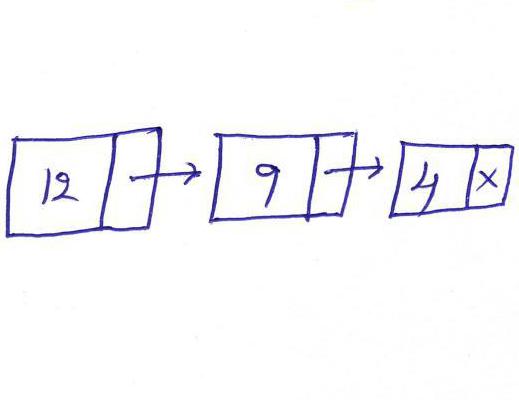 12 9 4 X